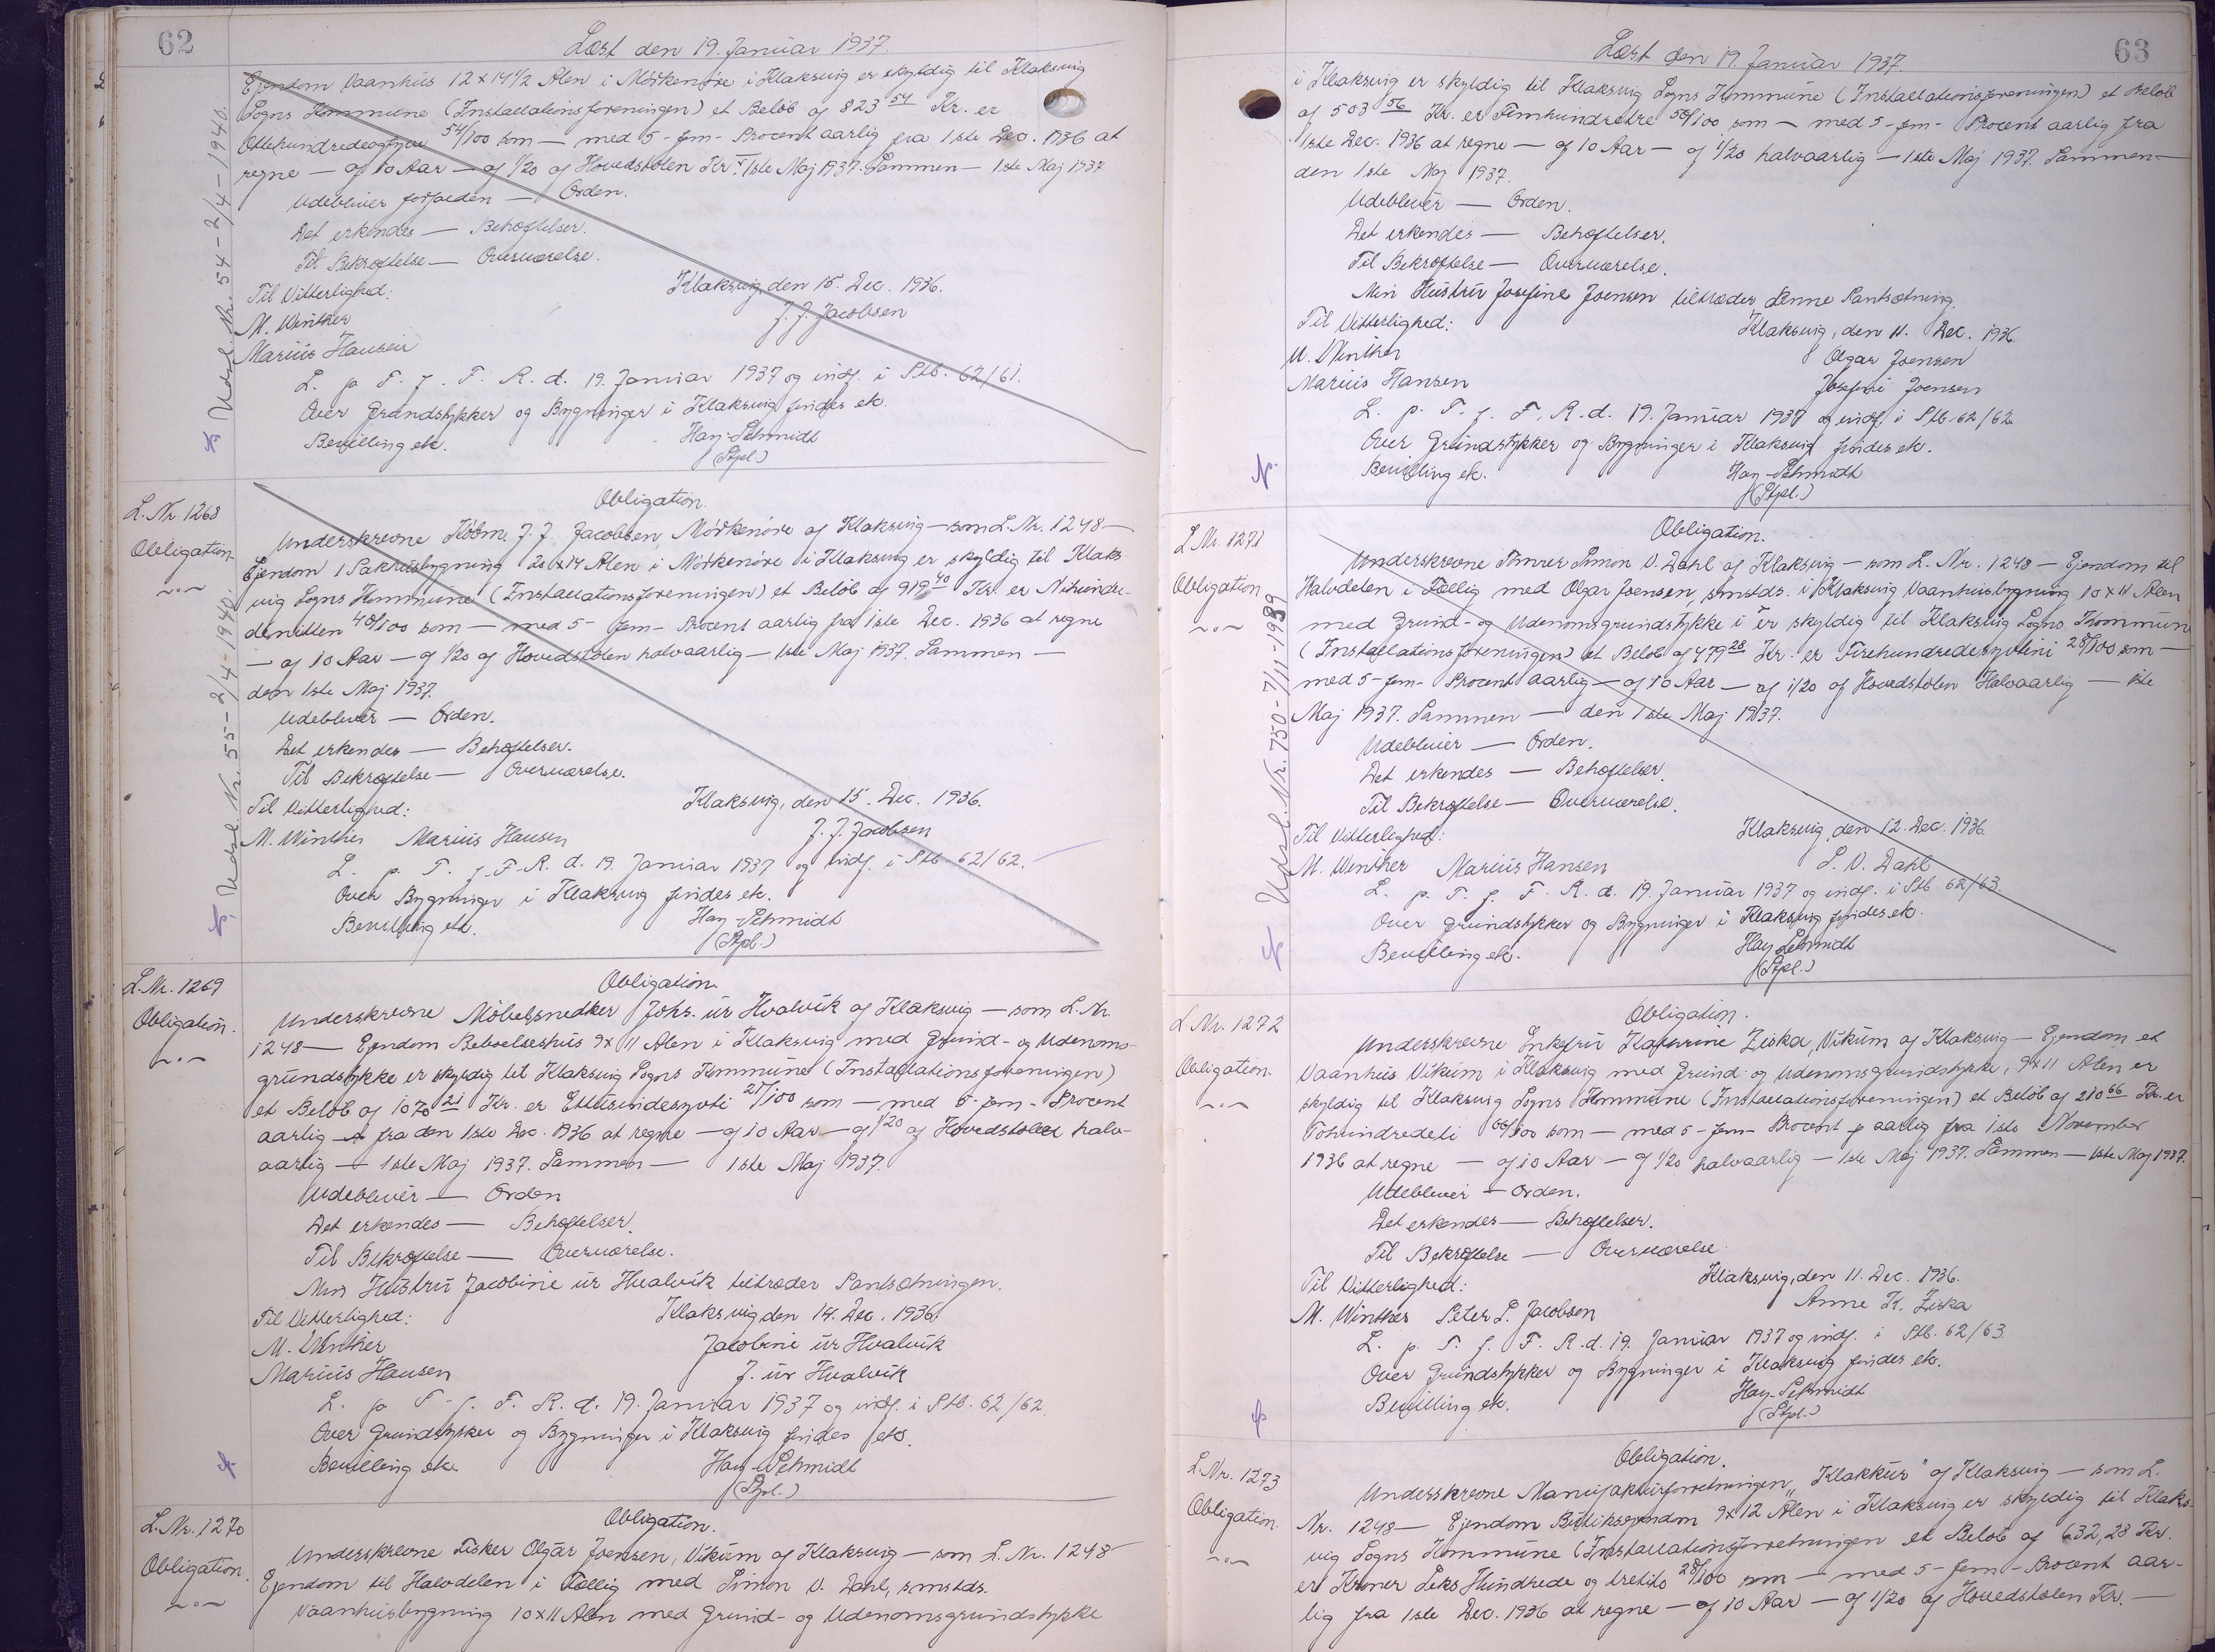 62
Læst den 19. Januar 1937.
Ejendom Vaanhus 12 x 14 1/2 Alen i Mørkenøre i Klaksvig er skyldig til Klaksvig
Sogns Kommune (Installationsforeningen) et Beløb af 823 54 Kr. er
Ottehundredeogtyve 54/100 som — med 5 - fem - Procent aarlig fra 1ste Dec. 1936 at
regne — af 10 Aar — af 1/20 af Hovedstolen Kr. 1ste Maj 1937. Sammen — 1ste Maj 1937
Udebliver forfalden — Orden.
Det erkendes — Behæftelser.
Til Bekræftelse — Overværelse.
Til Vitterlighed: Klaksvig, den 15. Dec. 1936.
M. Winther J. J. Jacobsen
Marius Hansen
L. p. T. f. F. R. d. 19. Januar 1937 og indf. i Stb. 62/61.
Over Grundstykker og Bygninger i Klaksvig findes ek.
Bevilling ek. Hay-Schmidt
(Stpl.)
Udsl. Nr. 54 - 2/4 - 1940.
L. Nr. 1268
Obligation
Obligation.
Underskrevne Købm. J. J. Jacobsen, Mørkenøre af Klaksvig — som L. Nr. 1248 —
Ejendom 1 Pakhusbygning 20 x 14 Alen i Mørkenøre i Klaksvig er skyldig til Klaks
vig Sogns Kommune (Installationsforeningen) et Beløb af 919 40 Kr. er Nihundre-
denitten 40/100 som — med 5 - fem - Procent aarlig fra 1ste Dec. 1936 at regne
— af 10 Aar — af 1/20 af Hovedstolen halvaarlig — 1ste Maj 1937. Sammen —
den 1ste Maj 1937.
Udebliver — Orden.
Det erkendes — Behæftelser.
Til Bekræftelse — Overværelse.
Til Vitterlighed: Klaksvig, den 15. Dec. 1936.
M. Winther Marius Hansen J. J. Jacobsen
L. p. T. f. F. R. d. 19. Januar 1937 og indf. i Stb. 62/62.
Over Bygninger i Klaksvig findes ek.
Bevilling ek. Hay-Schmidt
(Stpl.)
Udsl. Nr. 55 - 2/4 - 1940.
L. Nr. 1269
Obligation.
Obligation.
Underskrevne Møbelsnedker Johs. úr Hvalvík af Klaksvig — som L. Nr.
1248 — Ejendom Beboelseshus 9 x 11 Alen i Klaksvig med Grund- og Udenoms-
grundstykke er skyldig til Klaksvig Sogns Kommune (Installationsforeningen)
et Beløb af 1070 21 Kr. er Ettusindesyvti 21/100 som — med 5 - fem - Procent
aarlig fra den 1ste Dec. 1936 at regne — af 10 Aar — af 1/20 af Hovedstolen halv-
aarlig — 1ste Maj 1937. Sammen — 1ste Maj 1937.
Udebliver — Orden
Det erkendes — Behæftelser.
Til Bekræftelse — Overværelse.
Min Hustru Jacobine úr Hvalvík tiltræder Pantsætningen.
Til Vitterlighed: Klaksvig den 14. Dec. 1936.
M. Winther Jacobine úr Hvalvík
Marius Hansen J. úr Hvalvík
L. p. T. f. F. R. d. 19. Januar 1937 og indf. i Stb. 62/62.
Over Grundstykker og Bygninger i Klaksvig findes ek.
Bevilling ek. Hay-Schmidt
(Stpl.)
L. Nr. 1270
Obligation.
Obligation.
Underskrevne Fisker Olgar Joensen, Vikum af Klaksvig — som L. Nr. 1248
Ejendom til Halvdelen i Fællig med Simon V. Dahl, smstds.
Vaanhusbygning 10 x 11 Alen med Grund- og Udenomsgrundstykke
63
Læst den 19. Januar 1937.
i Klaksvig er skyldig til Klaksvig Sogns Kommune (Installationsforeningen) et Beløb
af 503 56 Kr. er Femhundredetre 56/100 som — med 5 - fem - Procent aarlig fra
1ste Dec. 1936 at regne — af 10 Aar — af 1/20 halvaarlig — 1ste Maj 1937. Sammen —
den 1ste Maj 1937.
Udebliver — Orden.
Det erkendes — Behæftelser.
Til Bekræftelse — Overværelse.
Min Hustru Josefine Joensen tiltræder denne Pantsætning.
Til Vitterlighed: Klaksvig, den 11. Dec. 1936.
M. Winther Olgar Joensen
Marius Hansen Josefine Joensen
L. p. T. f. F. R. d. 19. Januar 1937 og indf. i Stb. 62/62
Over Grundstykker og Bygninger i Klaksvig findes ek.
Bevilling ek. Hay-Schmidt
(Stpl.)
L. Nr. 1271
Obligation
Obligation.
Underskrevne Tømrer Simon V. Dahl af Klaksvig — som L. Nr. 1248 — Ejendom til
Halvdelen i Fællig med Olgar Joensen, smstds. i Klaksvig Vaanhusbygning 10 x 11 Alen
med Grund- og Udenomsgrundstykke i er skyldig til Klaksvig Sogns Kommune
(Installationsforeningen) et Beløb af 479 28 Kr. er Firehundredesyvtini 28/100 som —
med 5 - fem - Procent aarlig — af 10 Aar — af 1/20 af Hovedstolen Halvaarlig — 1ste
Maj 1937. Sammen — den 1ste Maj 1937.
Udebliver — Orden.
Det erkendes — Behæftelser.
Til Bekræftelse — Overværelse.
Til Vitterlighed: Klaksvig, den 12. Dec. 1936.
M. Winther Marius Hansen S. V. Dahl
L. p. T. f. F. R. d. 19. Januar 1937 og indf. i Stb. 62/63.
Over Grundstykker og Bygninger i Klaksvig findes ek.
Bevilling ek. Hay-Schmidt
(Stpl.)
Udsl. Nr. 750 - 7/11 - 1939
L. Nr. 1272
Obligation.
Obligation.
Underskrevne Enkefru Katrine Ziska, Vikum af Klaksvig — Ejendom et
Vaanhus Vikum i Klaksvig med Grund- og Udenomsgrundstykke, 9 x 11 Alen er
skyldig til Klaksvig Sogns Kommune (Installationsforeningen) et Beløb af 210 66 Kr. er
Tohundredeti 66/100 som — med 5 - fem - Procent p aarlig fra 1ste November
1936 at regne — af 10 Aar — af 1/20 halvaarlig — 1ste Maj 1937. Sammen — 1ste Maj 1937.
Udebliver — Orden.
Det erkendes — Behæftelser.
Til Bekræftelse — Overværelse
Til Vitterlighed: Klaksvig, den 11. Dec. 1936.
M. Winther Peter L. Jacobsen Anne K. Ziska
L. p. T. f. F. R. d. 19. Januar 1937 og indf. i Stb. 62/63.
Over Grundstykker og Bygninger i Klaksvig findes ek.
Bevilling ek. Hay-Schmidt
(Stpl.)
L. Nr. 1273
Obligation.
Obligation.
Underskrevne Manufakturforretningen "Klakkur" af Klaksvig — som L.
Nr. 1248 — Ejendom Butiksejendom 9 x 12 Alen i Klaksvig er skyldig til Klaks-
vig Sogns Kommune (Installationsforretningen et Beløb af 632,28 Kr.
er Kroner Seks Hundrede og tretito 28/100 som — med 5 - fem - Procent aar-
lig fra 1ste Dec. 1936 at regne — af 10 Aar — af 1/20 af Hovedstolen Kr. —